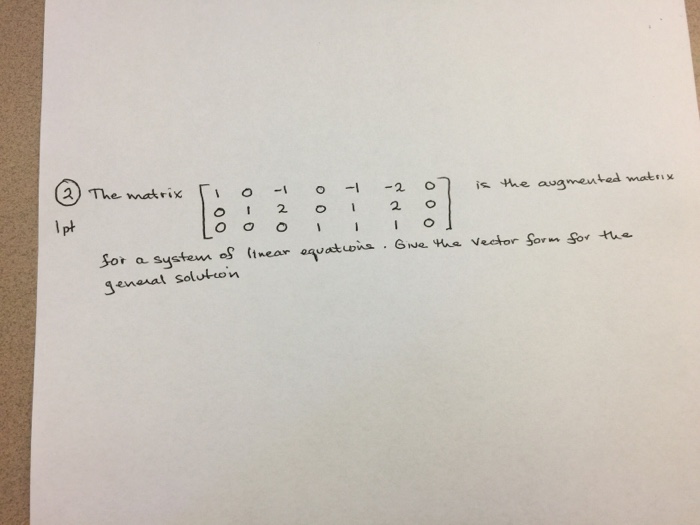 ② The matrix [ 1 0 -1 0 -1 -2 0 ] is the augmented matrix
0 1 2 0 1 2 0
1pt 0 0 0 1 1 1 0
for a system of linear equations. Give the vector form for the
general solution